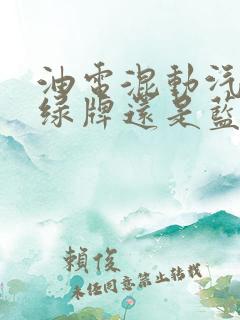 油電混動汽
綠牌還是藍
賴俊
未經同意禁止轉載